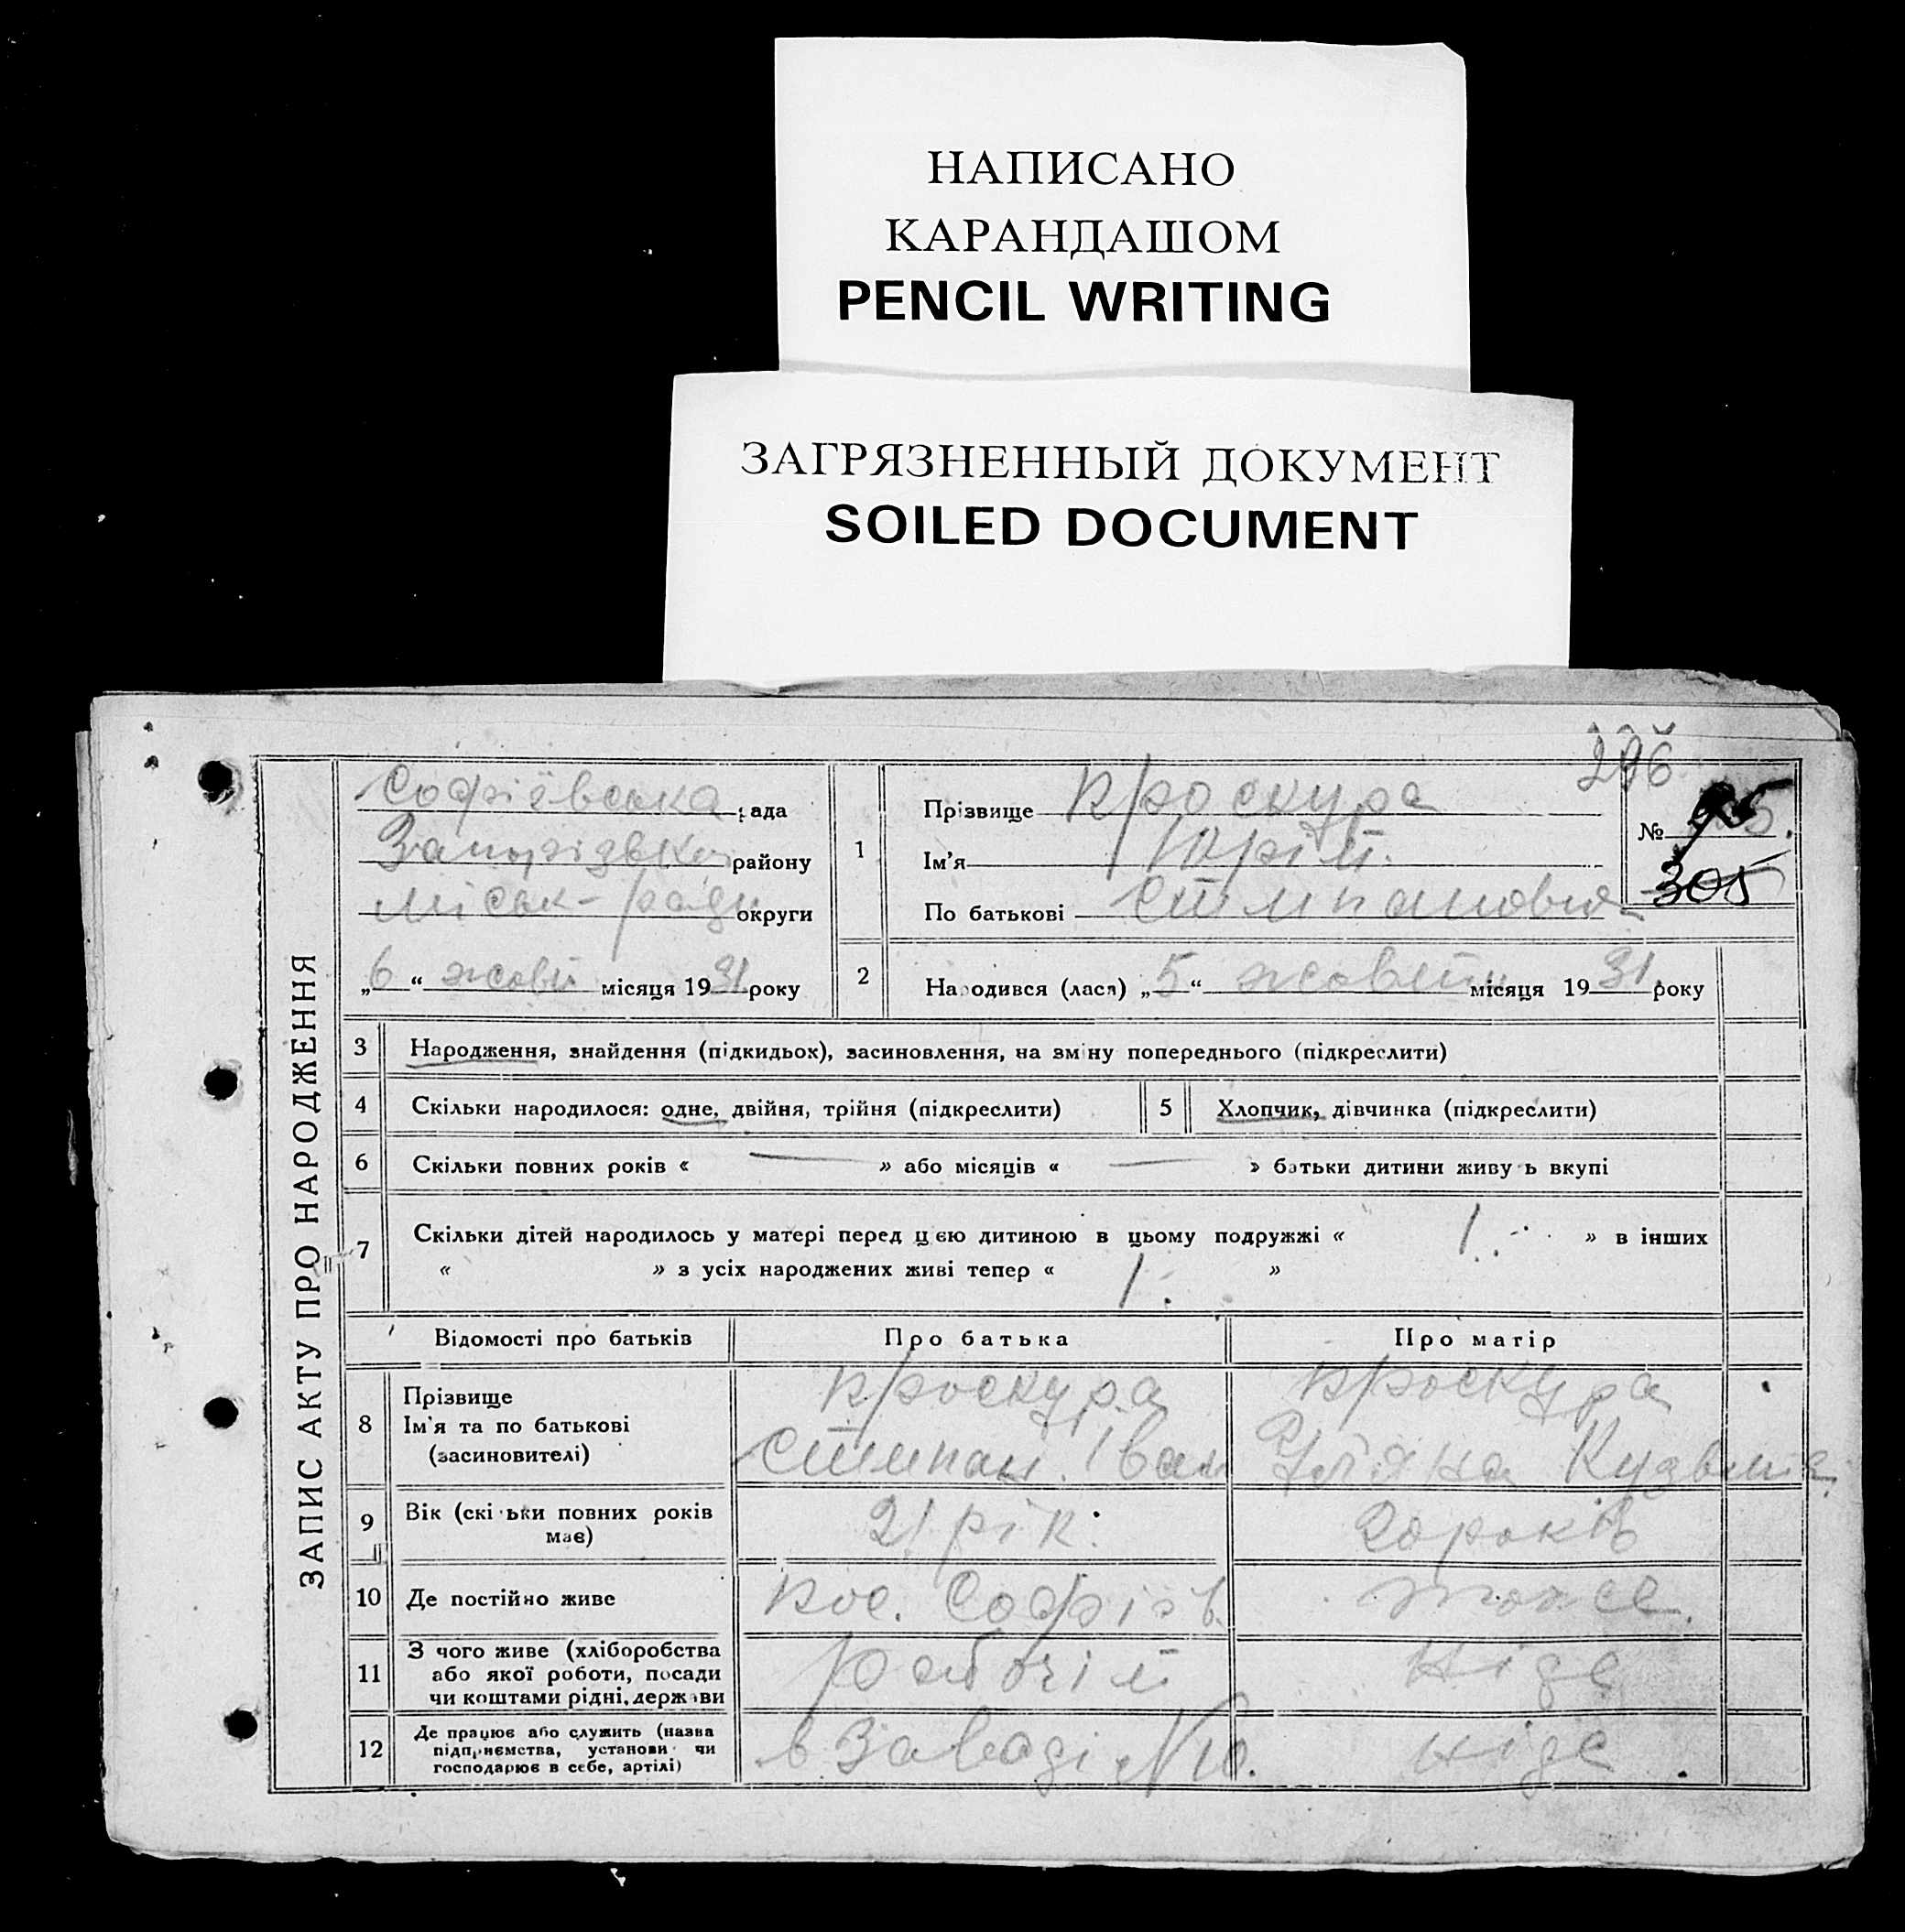 НАПИСАНО
КАРАНДАШОМ
PENCIL WRITING
ЗАГРЯЗНЕННЫЙ ДОКУМЕНТ
SOILED DOCUMENT
296
ЗАПИС АКТУ ПРО НАРОДЖЕННЯ
Софіївська рада
району
міськ-ради округи
„6“ жовт місяця 1931 року
1
Прізвище Проскура
Ім'я Юрій.
По батькові
№
305
2
Народився (лася) „5“ місяця 1931 року
3 Народження, знайдення (підкидьох), засиновлення, на зміну попереднього (підкреслити)
4 Скільки народилося: одне, двійня, трійня (підкреслити)
5 Хлопчик, дівчинка (підкреслити)
6 Скільки повних років « — » або місяців « — » батьки дитини живуть вкупі
7 Скільки дітей народилось у матері перед цією дитиною в цьому подружжі « 1 » в інших
« » з усіх народжених живі тепер « 1 »
Відомості про батьків
Про батька
Про матір
8
Прізвище
Ім'я та по батькові
(засиновителі)
Проскура
Стипан Іван
Проскура
9
Вік (скільки повних років
має)
21 рік.
20 років
10 Де постійно живе
Пос. Софіїв.
тоже.
11
З чого живе (хліборобства
або якої роботи, посади
чи коштами рідні, держави
робочій
ніде
12
Де працює або служить (назва
підприємства, установи чи
господарює в себе, артілі)
в Заводі N 10.
ніде